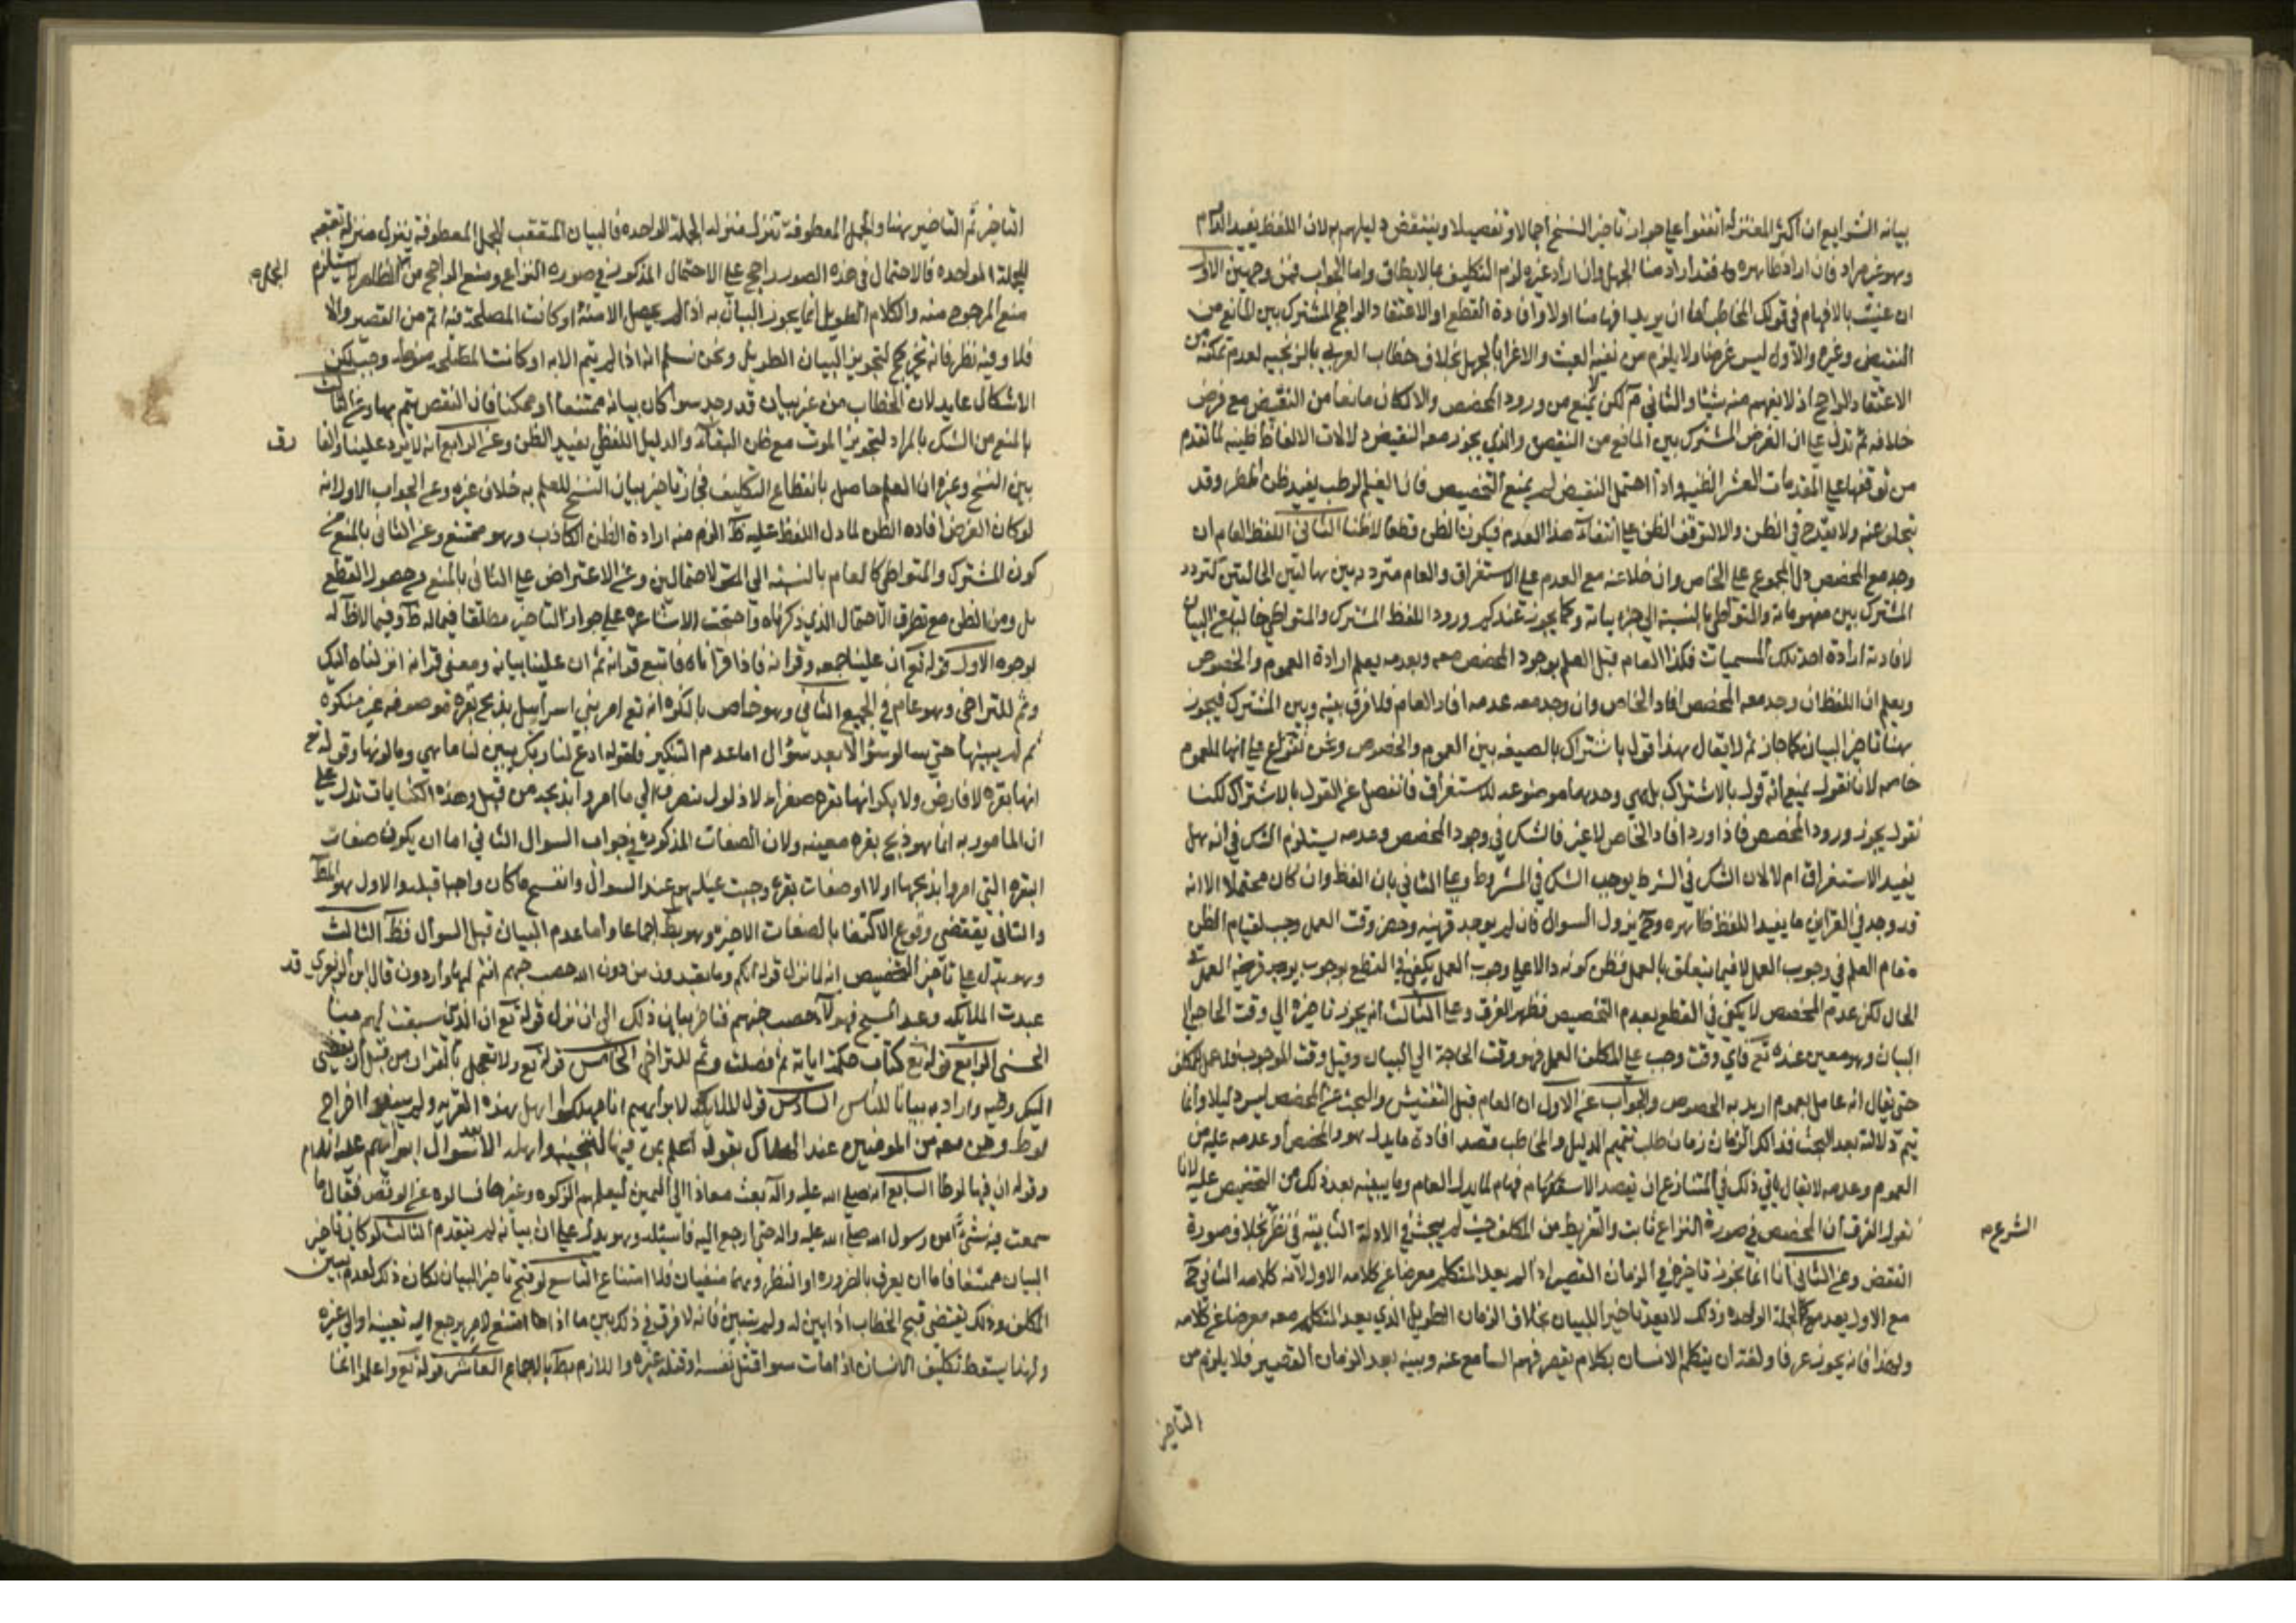 بيانه الشرايع ان اكثر المعتزلة اتفقوا على جواز تاخير النسخ اجمالا وتفصيلا وينتقض دليلهم به لان اللفظ يفيد الدوام
وهو غير مراد فان اراد ظاهره فقد اراد منا الجهل وان اراد غيره لزم التكليف بما لا يطاق واما الجواب فمن وجهين الاول
ان عنيت بالافهام في قولك المخاطب اما ان يريد افهامنا اولا وافادة القطع او الاعتقاد الراجح المشترك بين المانع من
النقيض وغيره والاول ليس غرضنا ولا يلزم من نفيه العبث والاغراء بالجهل بخلاف خطاب العربي بالزنجيه لعدم تمكنه من
الاعتقاد الراجح اذ لا يفهم منه شيئا والثاني م لكن لا يمنع من ورود المخصص والا لكان مانعا من النقيض مع فرض
خلافه ثم ندل على ان الغرض المشترك بين المانع من النقيض والذي يجوز معه النقيض دلالات الالفاظ ظنيه لما تقدم
من توقفها على المقدمات العشر الظنيه واذا احتمل النقيض لم يمنع التخصيص فان الغيم الرطب يفيد ظن المطر وقد
يتخلف عنه ولا يقدح في الظن والا لتوقف الظن على انتفاء هذا العدم فيكون الظن قطعا لا ظنا الثاني اللفظ العام ان
وجد مع المخصص دل المجموع على الخاص وان خلا عنه مع العدم على الاستغراق والعام متردد بين هاتين الحالتين كتردد
المشترك بين مفهوماته والمتواطي بالنسبة الى جزيياته وكما يجوز عندكم ورود اللفظ المشترك والمتواطي خاليا عن البيان
لافادته ارادة احد تلك المسميات فكذا العام قبل العلم بوجود المخصص معه وبعدمه يعلم ارادة العموم والخصوص
ويعلم ان اللفظ ان وجد معه المخصص افاد الخاص وان وجد معه عدمه افاد العام فلا فرق بينه وبين المشترك فيجوز
هنا تاخير البيان كما جاز ثم لا يقال هذا قول باشتراك الصيغه بين العموم والخصوص ونحن نتفرع على انها للعموم
خاصه لانا نقول يمنع انه قول بالاشتراك بل هي وحدها موضوعه للاستغراق فانفصل عن القول بالاشتراك لكنا
نقول يجوز ورود المخصص فاذا ورد افاد الخاص لا غير فالشك في وجود المخصص وعدمه يستلزم الشك في انه هل
يفيد الاستغراق ام لا لان الشك في الشرط يوجب الشك في المشروط وعلى الثاني بان اللفظ وان كان محتملا الا انه
قد وجد في القراين ما يفيد اللفظ ظاهره وح يزول السوال فان لم يوجد قرينه وحضر وقت العمل وجب لقيام الظن
مقام العلم في وجوب العمل لا فيما يتعلق بالعمل فظن كونه دالا على وجوب العمل يكفي في القطع بوجوب العمل في
الحال لكن عدم المخصص لا يكفي في القطع بعدم التخصيص فظهر الفرق وعلى الثالث انه يجوز تاخيره الى وقت الحاجه الى
البيان وهو معين عنده تع فاي وقت وجب على المكلف العمل فهو وقت الحاجة الى البيان وقبل وقت الوجوب
حتى يقال انه عامل بعموم اريد به الخصوص والجواب عن الاول ان العام قبل التفتيش والبحث عن المخصص ليس دليلا وانما
يتم دلالته بعد البحث فذلك الزمان زمان طلب تتميم الدليل والمخاطب قصد افادة ما يدل هو والمخصص او عدمه عليه من
العموم وعدمه لا يقال ياتي ذلك في المتنازع ان يقصد الاستفهام فهام لما يدل العام وما يبينه بعد ذلك من التخصيص عليه لانا
نقول الفرق ان المخصص في صورة النزاع ثابت والتفريط من المكلف حيث لم يبحث في الادلة الثابته في نظر بخلاف صورة
الشرع
النقض وعن الثاني انا انما يجوز تاخيره في الزمان القصير اذ لم يعد المتكلم معرضا عن كلامه الاول لانه كلامه الثاني ح
مع الاول يعد مع كالجملة الواحده وذلك لا يعد تاخيرا للبيان بخلاف الزمان الطويل الذي يعد المتكلم معه معرضا عن كلامه
ولهذا فانه يجوز عرفا ولغة ان يتكلم الانسان بكلام يقصر فهم السامع عنه ويبينه بعد الزمان القصير فلا يلزم من
التاخير
التاخير ثم التاخير هنا والجمل المعطوفة تنزل منزله الجملة الواحده فالبيان المتعقب للجمل المعطوفة ينزل منزلة تعقبه
للجملة الواحده فالاحتمال في هذه الصور راجح على الاحتمال المذكور في صوره النزاع ومنع الراجح من الظاهر يستلزم
منع المرجوح منه والكلام الطويل انما يجوز البيان به اذا لم يحصل الا منه او كانت المصلحة فيه اتم من القصير والا
فلا وفيه نظر فانه تخريج لتجويز البيان الطويل ونحن نسلم انه اذا لم يتم الا به او كانت المصلحه منوطه وجب لكن
الاشكال عايد لان الخطاب من غير بيان قد وجد سوا كان بيانه ممتنعا او ممكنا فان النقص يتم بهما وعن الثالث
بالمنع من الشك بالمراد لتجويز الموت مع ظن البقاء والدليل اللفظي يفيد الظن وعن الرابع انه لا يرد علينا والفا
رق
بين النسخ وغيره ان العلم حاصل بانقطاع التكليف فجاز تاخير بيان النسخ للعلم به خلاف غيره وعلى الجواب الاول انه
لو كان الغرض افاده الظن لما دل اللفظ عليه ظ الزم منه ارادة الظن الكاذب وهو ممتنع وعن الثاني بالمنع من
كون المشترك والمتواطي كالعام بالنسبة الى الاحتمالين وعن الاعتراض على الثاني بالمنع من حصول القطع
بل ومن الظن مع تطرق الاحتمال الذي ذكرناه واحتجت الاشاعرة على جواز التاخير مطلقا فيما له ظ وفيما لا ظ له
بوجوه الاول قوله تع ان علينا جمعه وقرانه فاذا قراناه فاتبع قرانه ثم ان علينا بيانه ومعنى قرانه انزلناه اليك
وثم للتراخي وهو عام في الجميع الثاني وهو خاص بالنكره انه تع امر بني اسراييل بذبح بقرة موصوفه غير منكوره
ثم لم يبينها حتى سالو سؤالا بعد سؤال اما عدم التنكير فلقوله ادع لنا ربك يبين لنا ما هي وما لونها وقوله تع
انها بقره لا فارض ولا بكر انها بقره صفراء لا ذلول ينصرف الى ما امروا بذبحه من قبل وهذه الكنايات تدل على
ان المامور به انما هو ذبح بقره معينه ولان الصفات المذكوره في جواب السوال الثاني اما ان يكون صفات
البقره التي امروا بذبحها اولا او صفات بقرة وجبت عليهم عند السوال وانفسخ ما كان واجبا قبله والاول هو المط
والثاني يقتضي وقوع الاكتفا بالصفات الاخيره وهو بط اجماعا واما عدم البيان قبل السوال فظ الثالث
وهو يدل على تاخير التخصيص انه لما نزل قوله انكم وما تعبدون من دون الله حصب جهنم انتم لها واردون قال ابن الزبعرى قد
عبدت الملائكه وعبد المسيح فهولاء حصب جهنم فتاخر بيان ذلك الى ان نزل قوله تع ان الذين سبقت لهم منا
الحسنى الرابع قوله تع كتاب احكمت اياته ثم فصلت وثم للتراخي الخامس قوله تع ولا تعجل بالقران من قبل ان يقضى
اليك وحيه واراد به بيانا للناس السادس قول الملايكه لابراهيم انا مهلكوا اهل هذه القريه ولم يبينوا اخراج
لوط ومن معه من المومنين عند الهلاك بقوله اعلم بمن فيها لننجينه واهله الا بعد سوال ابراهيم عليه السلام
وقوله ان فيها لوطا السابع انه صلى الله عليه واله بعث معاذا الى اليمن ليعلمهم الزكوه وغيرها فسالوه عن الوقص فقال ما
سمعت فيه شيئا من رسول الله صلى الله عليه واله حتى ارجع اليه فاسئله وهو يدل على ان بيانه لم يتقدم الثالث لو كان تاخير
البيان ممتنعا فاما ان يعرف بالضروره او النظر وهما منفيان فلا امتناع التاسع لو قبح تاخير البيان لكان ذلك لعدم تبين
المكلف وذلك يقتضي قبح الخطاب اذا بين له ولم يتبين فانه لا فرق في ذلك بين ما اذا امتنع لامر يرجع اليه نفسه او الى غيره
ولهذا يسقط تكليف الانسان اذا مات سوا قتل نفسه او قتله غيره واللازم بط بالاجماع العاشر قوله تع واعلموا انما